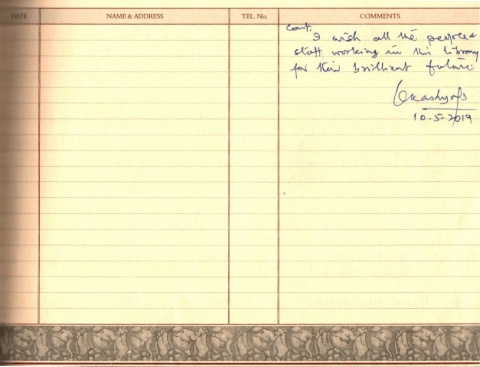 DATE NAME & ADDRESS TEL. No. COMMENTS
Cont.
I wish all the people &
staff working in this Library
for their brilliant future
10-5-2019